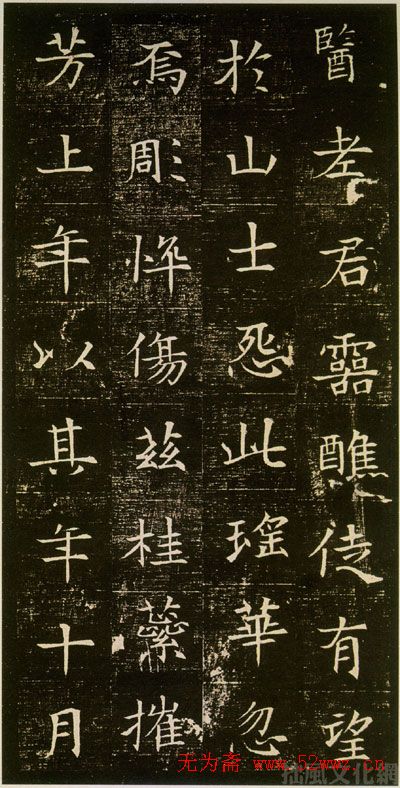 醫老君靈醮徒有望
於山士怨此瑤華忽
焉彫悴傷茲桂蘂摧
芳上年以其年十月
无为斋 www.52wwz.cn
拙風文化網